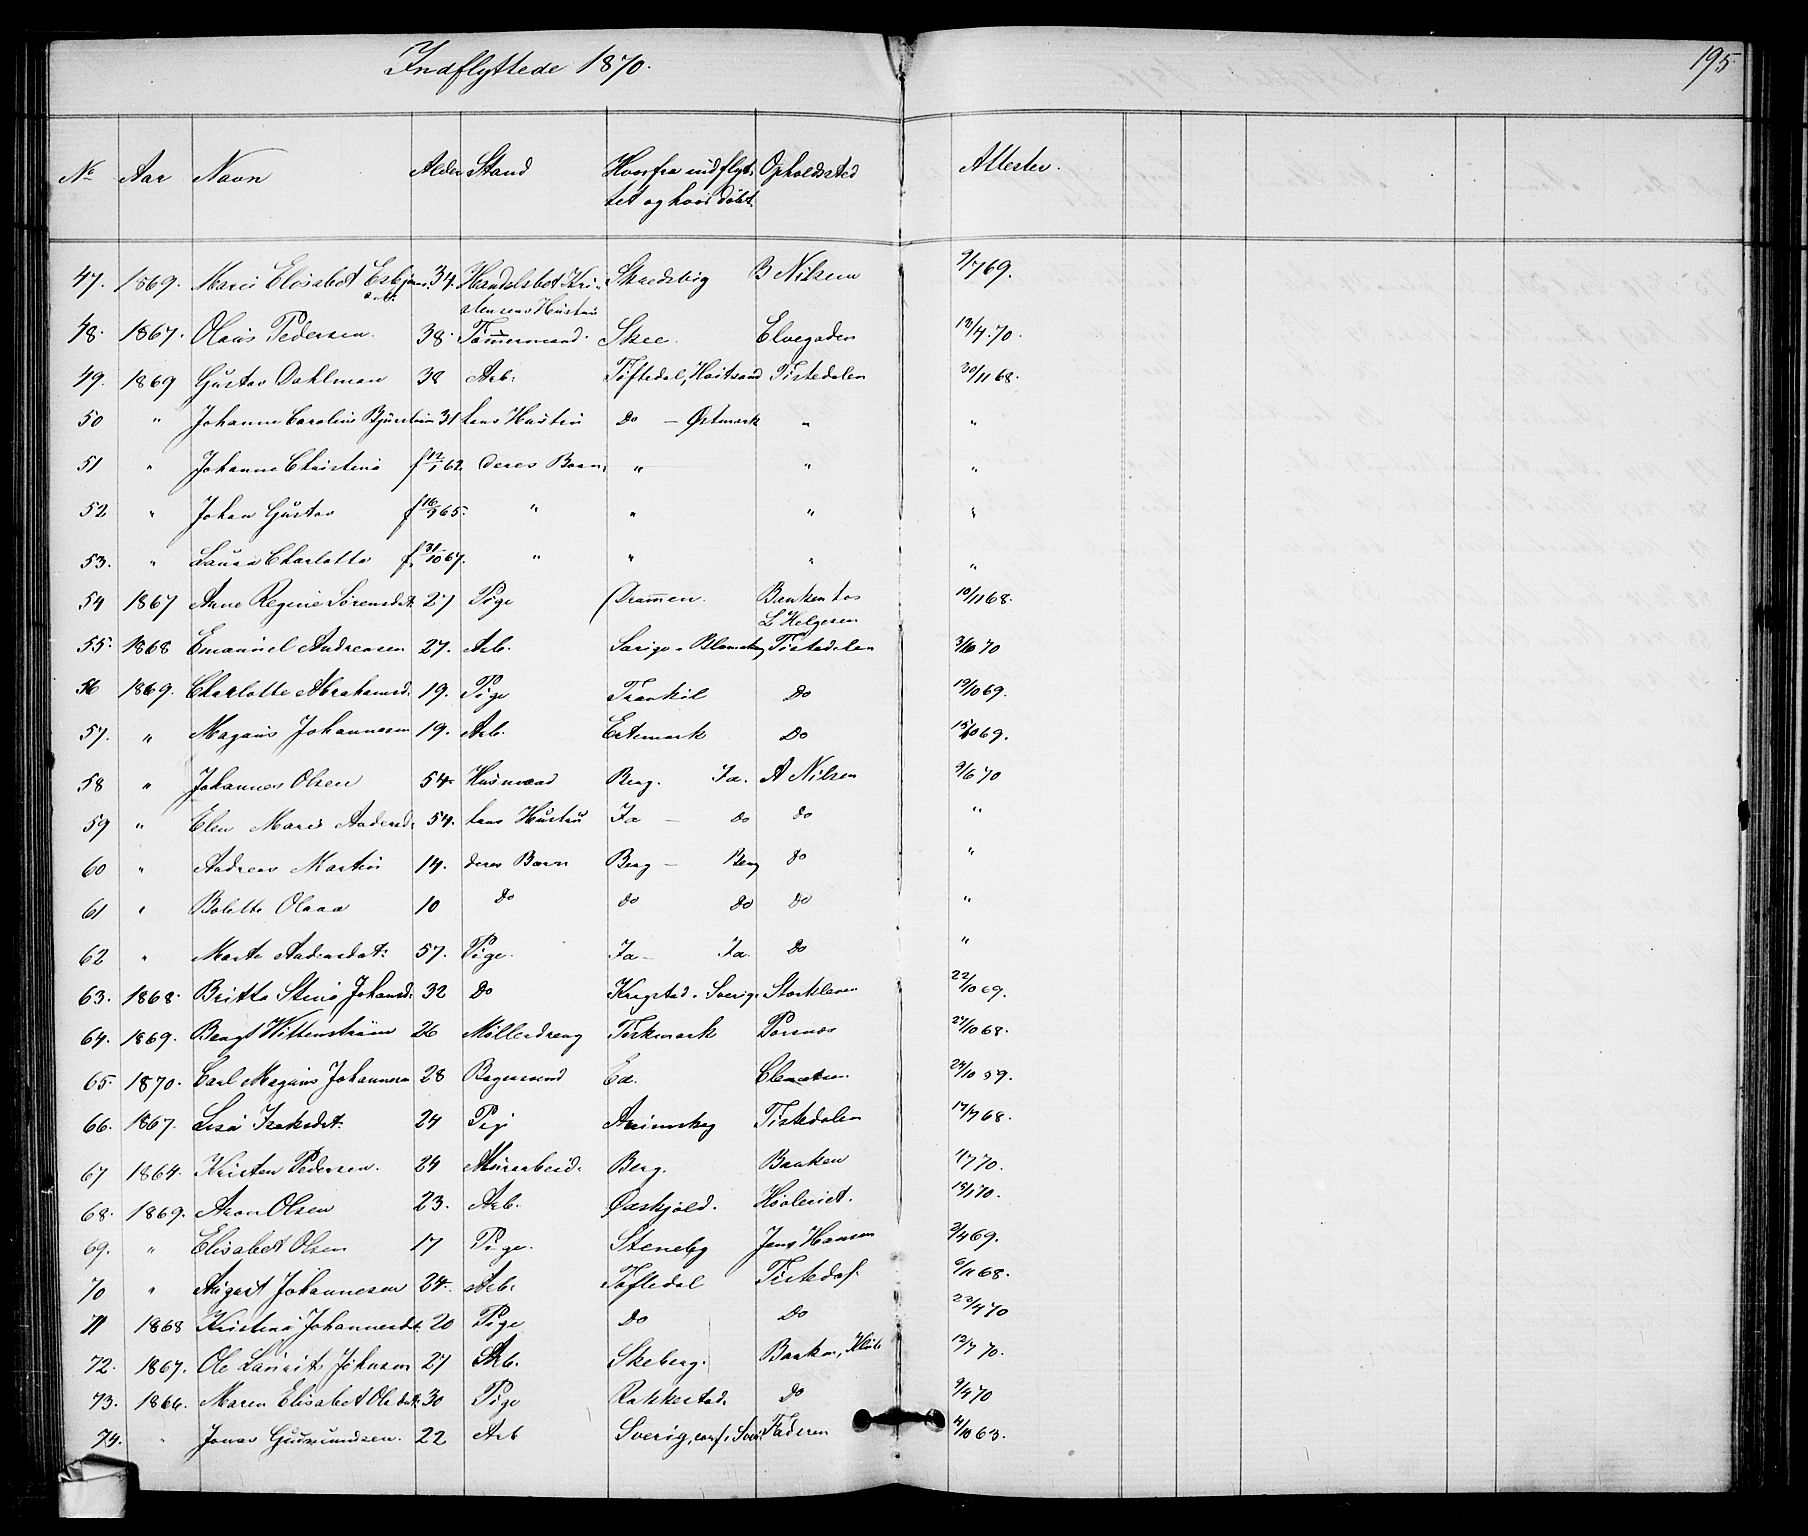 Indflyttede 1870.
195
No Aar Navn Alder Stand Hvorfra indflyt- Opholdssted Attester.
tet og hvor døbt
47. 1869. Marie Elisabet Esbjørns- 34. Handelsbet. Kri- B Nilsen 9/7 69.
stensens Hustru
48. 1867. Olaus Pedersen. 38. Tømmermand. Skee. Elvegaden 13/4. 70.
49. 1869 Gustav Dahlman 38 Arb. Töftedal, Tistedalen 30/11 68.
50 " Johanne Caroline 31 hans Hustru Do — Østmark " "
51 " Johanne Christine f 12/1 62. deres Børn " " "
52 " Johan Gustav f 16/9 65. " " " "
53. " Laura Charlotte f. 31/10 67. " " " "
54 1867 Anne Regine Sørensdt. 27 Pige Dramen. Banken hos 10/11 68.
L Helgesen
55. 1868 Emanuel Andreasen 27. Arb. Tistedalen 3/10 70
56 1869. Charlotte Abrahamsd. 19. Pige Trankil Do 19/10 69.
57. " Magnus Johannesen 19. Arb. Ertemark Do 15/10 69.
58 " Johannes Olsen 54 Husmand Berg. Id. A Nilsen 9/6 70
59 " Elen Marie Andersd. 54. hans Hustru Id — do do "
60 " Andreas Martin 14. deres Børn Berg — Berg do "
61 " Bolette Olava 10 Do do do do "
62 " Marte Andersdat. 57. Pige. Id — Id. Do "
63. 1868. Britta Stina Johansd. 32 Do Sverig. 22/10 69.
64. 1869. Bengt Wittenstrøm 26 Møllerdreng Torskmark Porsnes 24/10 68.
65. 1870. Carl Magnus Johannesen 28 Bagersvend Ed. Clemetsen 24/10 59.
66. 1867. Lisa Isaksdt. 24 Pige Tistedalen 17/7 68.
67 1864. Kristen Pedersen. 24 Murarbeid. Berg. Banken 1/7 70.
68. 1869. Aron Olsen 23. Arb. Øxskjold. 18/1 70.
69. " Elisabet Olsen 17 Pige. Steneby Jens Hansen 2/4 69.
70 " August Johannesen 24. Arb. Töftedal Tistedal. 6/11 68.
71 1868 Kristine Johannesdt. 20 Pige Do Do 23/4 70
72. 1867. Ole Laurits Johnsen 27 Arb. Skeberg. Banken, 12/7 70.
73. 1866. Maren Elisabet Olesdt. 30 Pige Rakkestad. Do 9/4 70
74. " Jonas Gudmundsen. 22 Arb Sverig, conf. i Sver. Faderen 4/10 63.